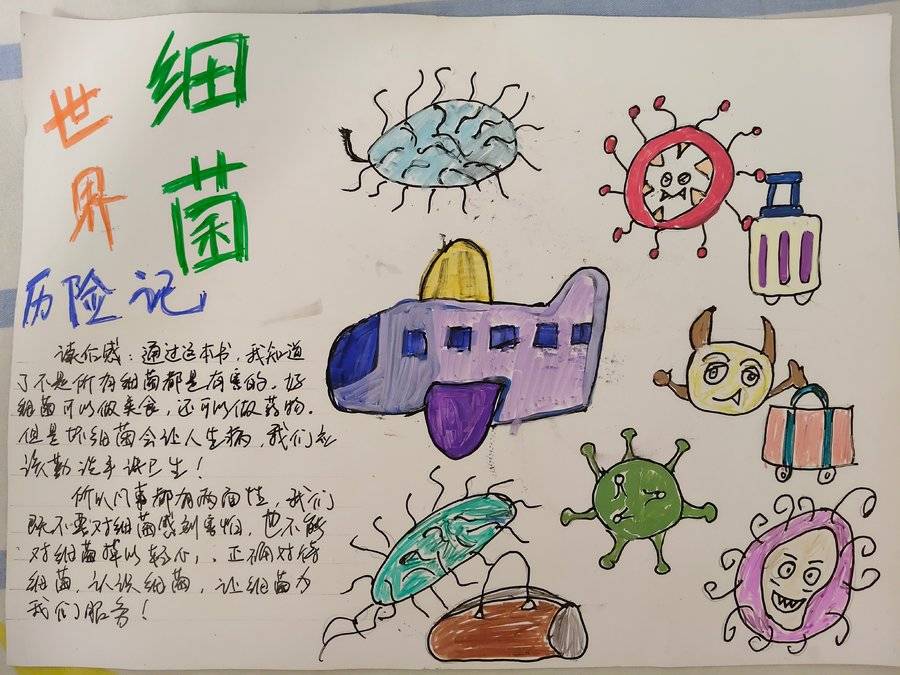 细菌
世界
历险记
读后感：通过这本书，我知道
了不是所有细菌都是有害的。好
细菌可以做美食，还可以做药物。
但是坏细菌会让人生病，我们应
该勤洗手讲卫生！
所以凡事都有两面性，我们
既不要对细菌感到害怕，也不能
对细菌掉以轻心，正确对待
细菌，认识细菌，让细菌为
我们服务！